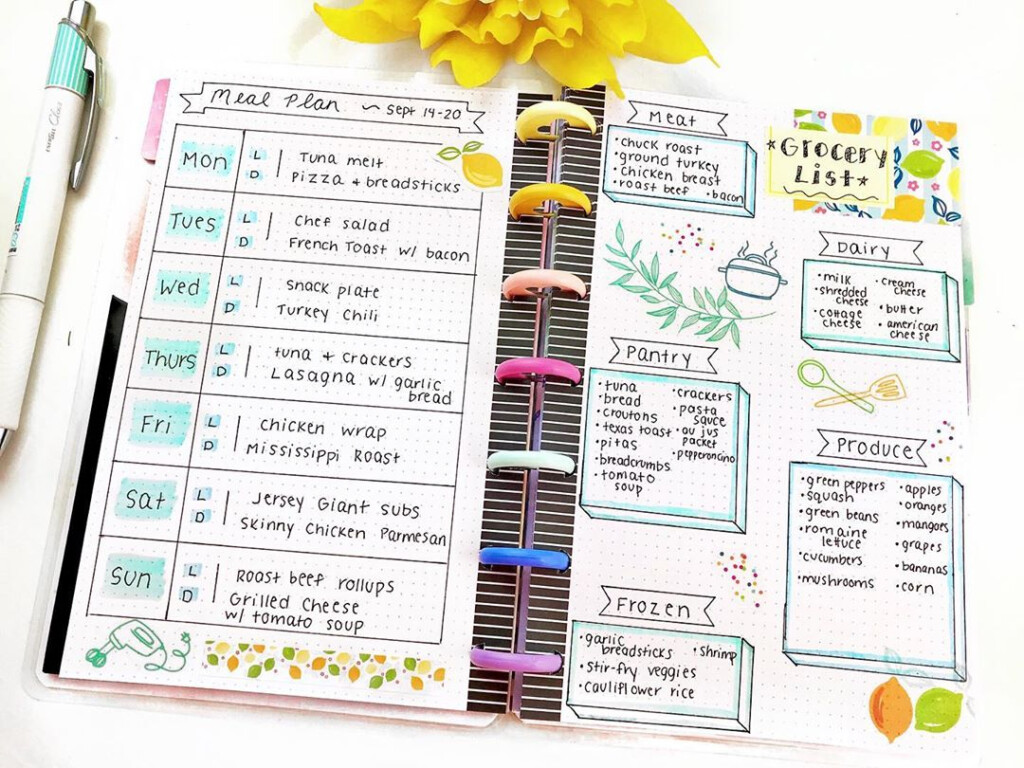 Meal Plan ~ Sept 14-20
Mon
L
D
Tuna melt
Pizza + breadsticks
Tues
L
D
Chef salad
French Toast w/ bacon
Wed
L
D
snack plate
Turkey Chili
Thurs
L
D
tuna + crackers
Lasagna w/ garlic
bread
Fri
L
D
chicken wrap
Mississippi Roast
Sat
L
D
Jersey Giant subs
Skinny Chicken Parmesan
Sun
L
D
Roast beef rollups
Grilled Cheese
w/ tomato soup
Meat
• chuck roast
• ground turkey
• chicken breast
• roast beef • bacon
*Grocery
List*
Dairy
• milk
• shredded
cheese
• cottage
cheese
• cream
cheese
• butter
• american
cheese
Pantry
• tuna
• bread
• croutons
• texas toast
• pitas
• breadcrumbs
• tomato
soup
• crackers
• pasta
sauce
• au jus
packet
• pepperoncino
Produce
• green peppers
• squash
• green beans
• romaine
lettuce
• cucumbers
• mushrooms
• apples
• oranges
• mangoes
• grapes
• bananas
• corn
Frozen
• garlic
breadsticks
• stir-fry veggies
• cauliflower rice
• shrimp